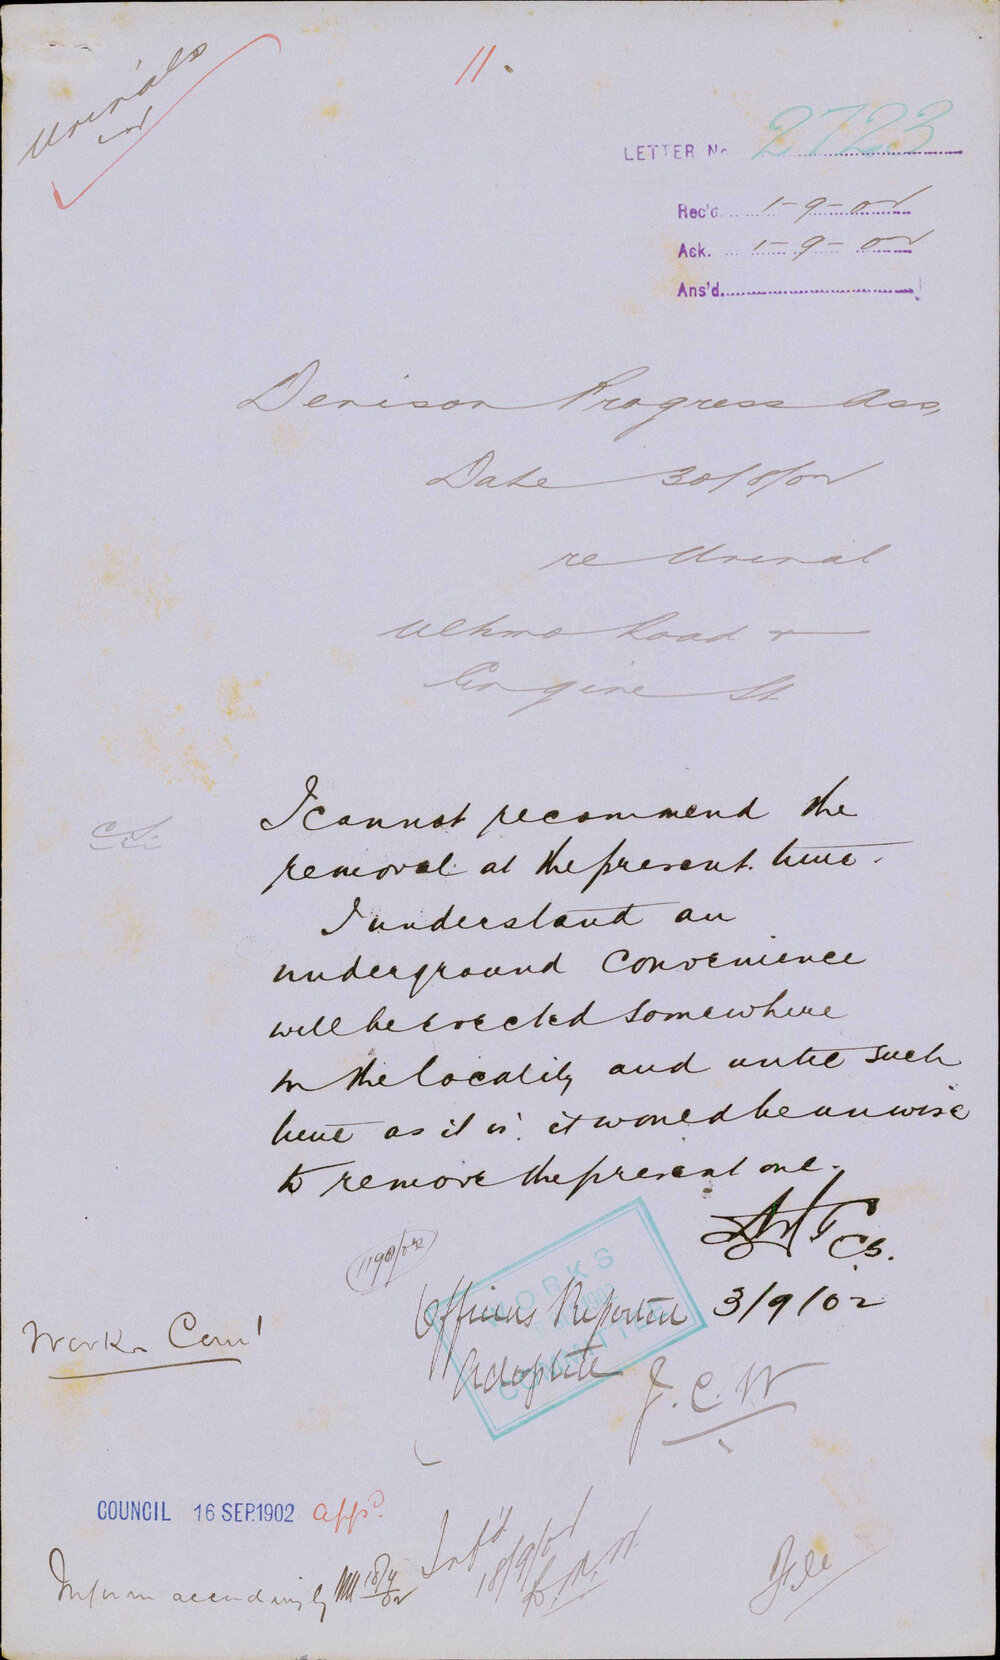 Urinals
11.
LETTER No 2723
Rec'd. 1-9-02
Ack. 1-9-02
Ans'd.
Denison Progress Ass,
Date 30/8/02
re Urinal
Ultimo Road &
Engine St
C.S.
I cannot recommend the
removal at the present time.
I understand an
underground convenience
will be erected somewhere
in the locality and until such
time as it is it would be unwise
to remove the present one.
C.S.
3/9/02
1190/02
WORKS
COMMITTEE
Officers Report
adopted
J. C. W
Works Com
COUNCIL 16 SEP.1902 app'd.
Inform accordingly
Inf'd
18/9/02
File